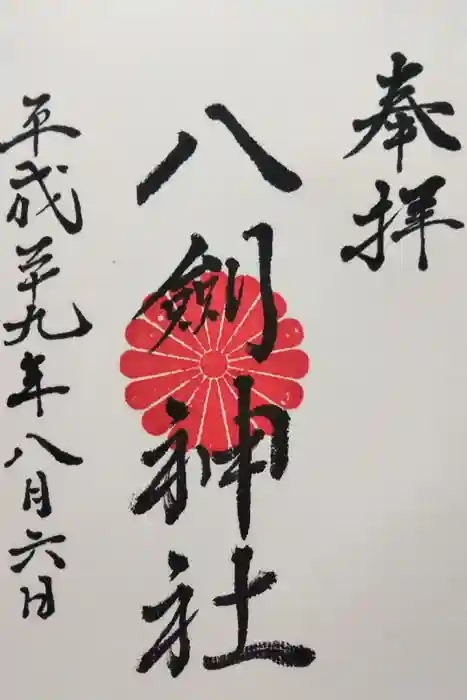 奉拝
八劔神社
平成廿九年八月六日